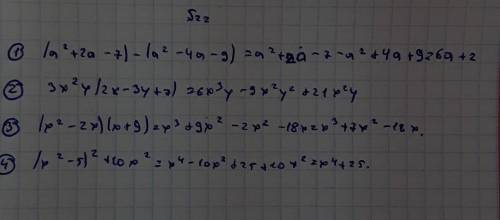 S22
① (a²+2a-7)-(a²-4a-9)=a²+2a-7-a²+4a+9=6a+2
② 3x²y(2x-3y+7)=6x³y-9x²y²+21x²y
③ (x²-2x)(x+9)=x³+9x²-2x²-18x=x³+7x²-18x.
④ (x²-5)²+10x²=x⁴-10x²+25+10x²=x⁴+25.